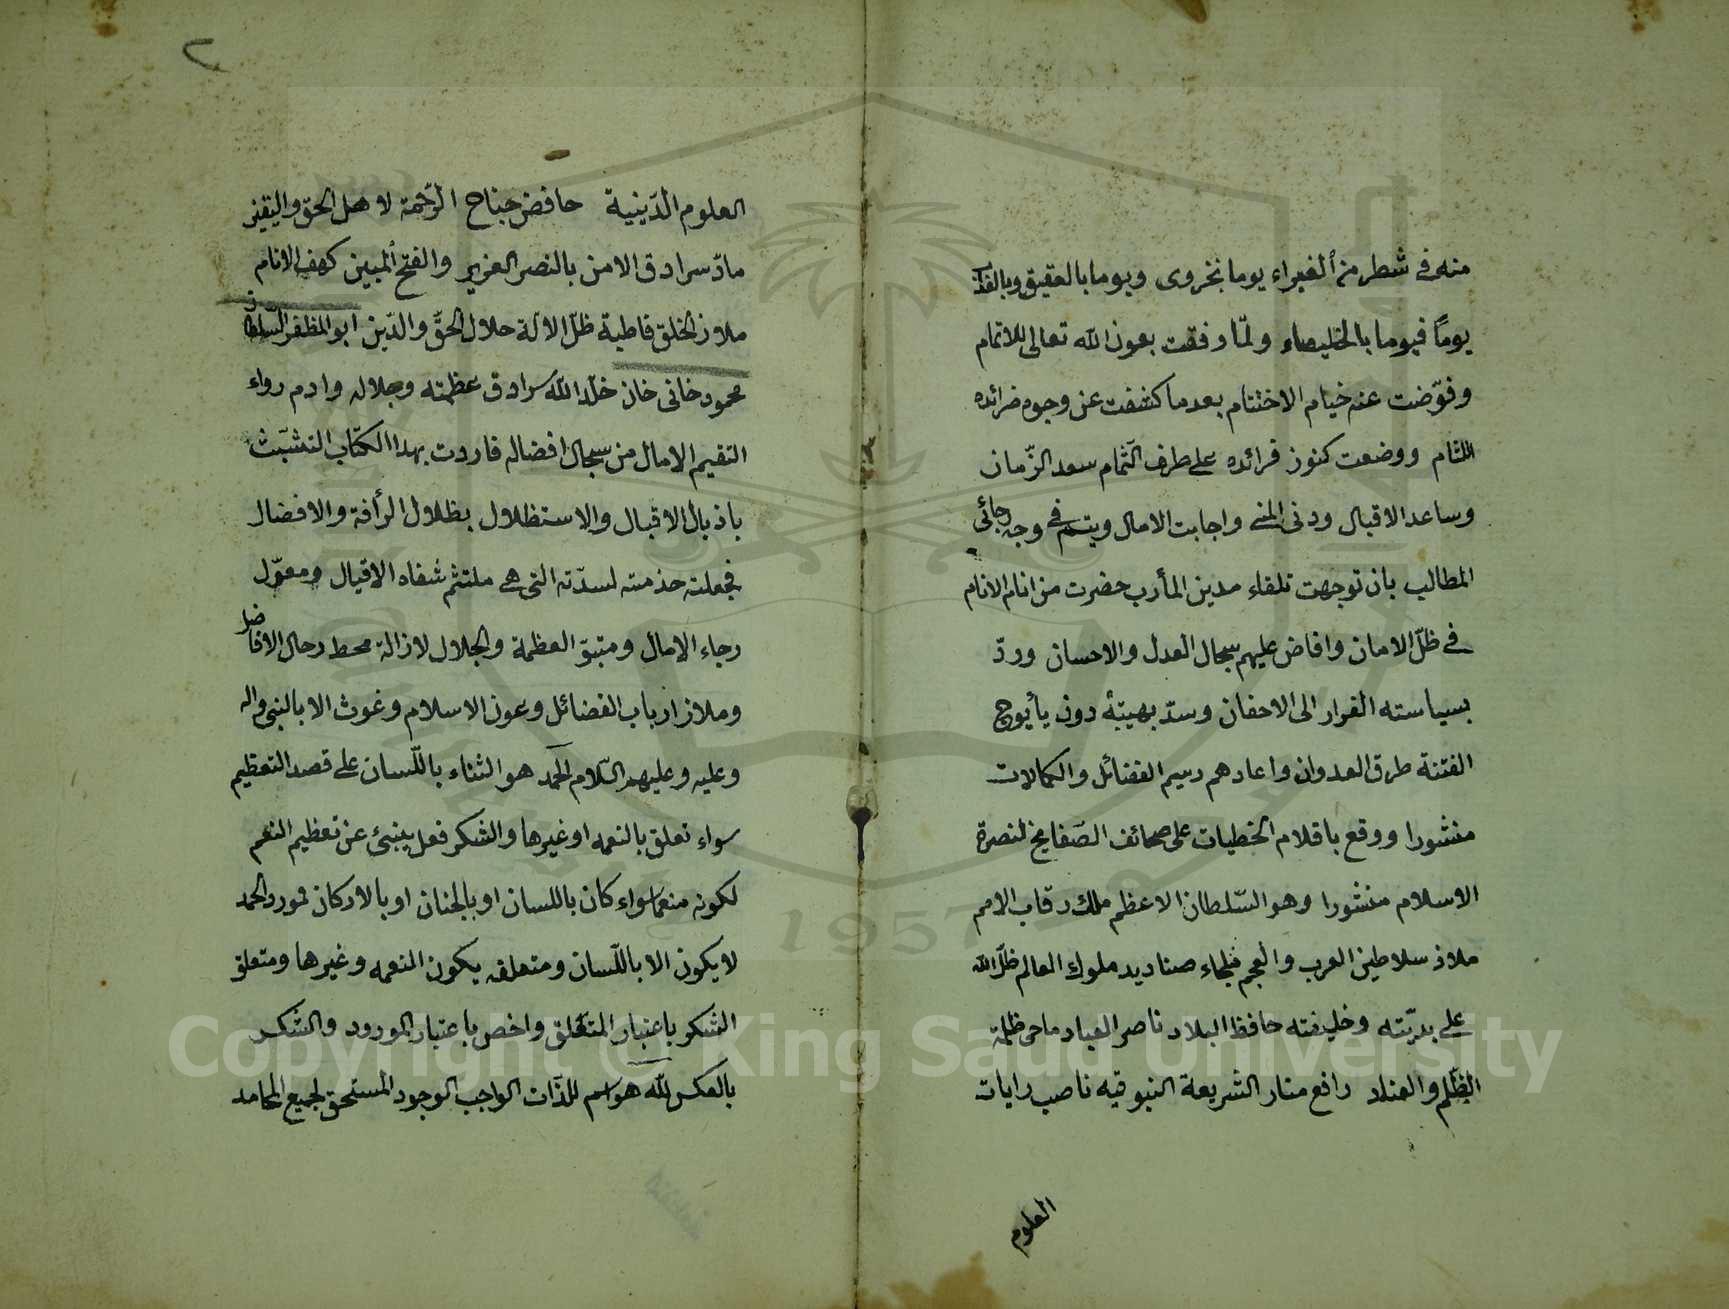 منه في شطر من الغبراء يوما بخروى ويوما بالعقيق وبالعذ
يوماً فيوما بالخليصاء ولمّا وفقت بعون الله تعالى للاتمام
وقوّضت عنه خيام الاختتام بعدما كشفت عن وجوه خرائده
اللثام ووضعت كنوز فرائده على طرف الثمام سعد الزّمان
وساعد الاقبال ودنى المنى واجابت الامال ويتسم في وجه رجائي
المطالب بان توجهت تلقاء مدين المأرب حضرت من انام الانام
في ظلّ الامان وافاض عليهم سجال العدل والاحسان وردّ
بسياسته الغرار الى الاحفان وسدّ بهيبته دون يأجوج
الفتنة طرق العدوان واعاد هم رميم الفضائل والكمالات
منشورا ووقع باقلام الخطيات على صحائف الصفايح لنصرة
الاسلام منشورا وهو السّلطان الاعظم ملك رقاب الامم
ملاذ سلاطين العرب والعجم ملجاء صناديد ملوك العالم ظلّ الله
على بريّته وخليفته حافظ البلاد ناصر العباد ماحى ظلمة
الظّلم والعناد رافع منار الشريعة النبويه ناصب رايات
العلوم
٢
العلوم الدّينية خافض جناح الرّحمة لاهل الحق واليقين
مادّ سرادق الامن بالنصر العزيز والفتح المبين كهف الانام
ملاذ الخلق قاطبة ظلّ الالة جلال الحقّ والدّين ابو المظفر السّلطان
محمود خانى خان خلّد الله سرادق عظمته وجلاله وادم رواء
التقيم الامال من سجال افضاله فاردت بهذا الكتاب التشبّث
باذيال الاقبال والاستظلال بظلال الرأفة والافضال
فجعلته خدمة لسدّته التى هي ملتثم شفاه الاقيال ومعوّل
رجاء الامال ومتبوّ العظمة والجلال لازالة محط رحال الافاضل
وملاذ ارباب الفضائل وعون الاسلام وغوث الا بالنبي واله
وعليه وعليهم السّلام الحمد هو الثناء باللّسان على قصد التعظيم
سواء تعلق بالنعمه او غيرها والشكر فعل ينبئ عن تعظيم النعم
لكونه منعما سواء كان باللسان او بالجنان او بالاركان فمورد الحمد
لا يكون الا باللّسان ومتعلقه يكون النعمه وغيرها ومتعلق
الشكر باعتبار المتعلق واخص باعتبار المورود والشكر
بالعكس لله هو اسم للذّات الواجب الوجود المستحق لجميع المحامد
Copyright © King Saud University
1957